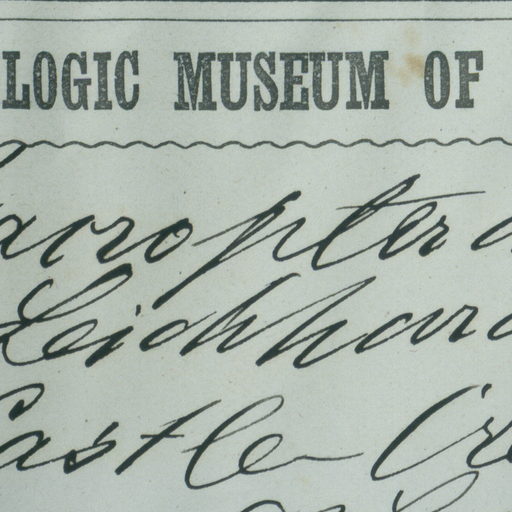 LOGIC MUSEUM OF
acroptera
Leichhard
Castle Cre